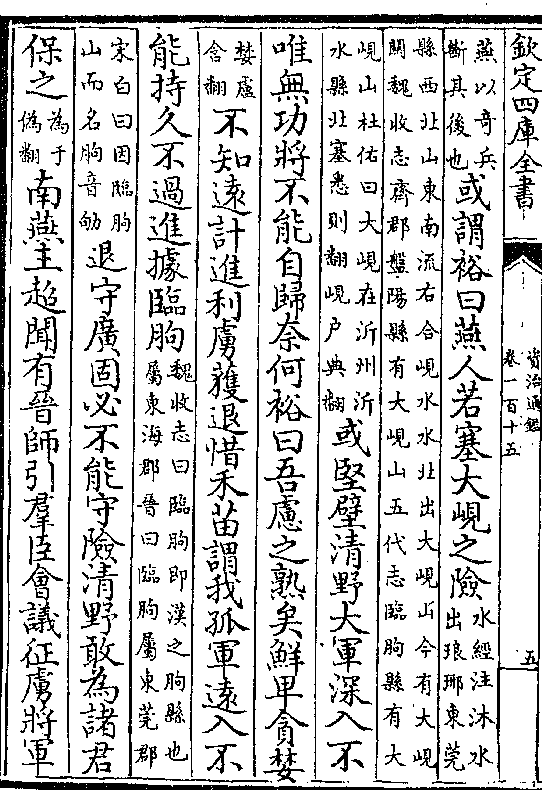 欽定四庫全書
資治通鑑
卷一百十五
五
燕以奇兵
斷其後也
或謂裕曰燕人若塞大峴之險
水經注沭水
出琅琊東莞
縣西北山東南流右合峴水水北出大峴山今有大峴
關魏收志齊郡盤陽縣有大峴山五代志臨朐縣有大
峴山杜佑曰大峴在沂州沂
水縣北塞悉則翻峴戶典翻
或堅壁清野大軍深入不
唯無功將不能自歸奈何裕曰吾慮之熟矣鮮卑貪婪
婪盧
含翻
不知遠計進利虜獲退惜禾苗謂我孤軍遠入不
能持久不過進據臨朐
魏收志曰臨朐即漢之朐縣也
屬東海郡晉曰臨朐屬東莞郡
宋白曰因臨朐
山而名朐音劬
退守廣固必不能守險清野敢為諸君
保之
為于
偽翻
南燕主超聞有晉師引羣臣會議征虜將軍